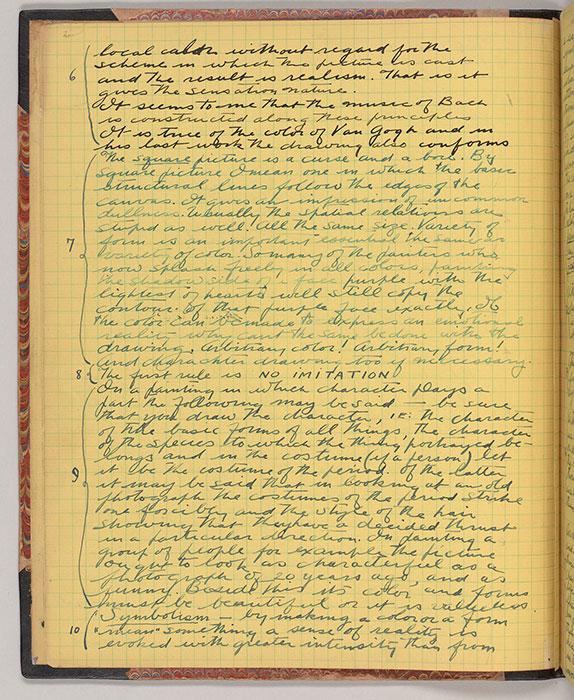 6 local color without regard for the
scheme in which the picture is cast
and the result is realism. That is it
gives the sensation nature.
It seems to me that the music of Bach
is constructed along these principles
It is true of the color of Van Gogh and in
his last work the drawing also conforms
The square picture is a curse and a bore. By
square picture I mean one in which the basic
structural lines follow the edges of the
canvas. It gives an impression of uncommon
dullness. Usually the spatial relations are
stupid as well. All the same size. Variety of
7 form is an important essential the same as
variety of color. So many of the painters who
now splash freely in all colors, painting
the shadow side of a face purple with the
lightest of hearts will still copy the
contour of that purple face exactly. If
the color can be made to express an emotional
reality why can't the same be done with the
drawing. Arbitrary color! Arbitrary form!
And character drawing too if necessary.
8 The first rule is NO IMITATION
In a painting in which character plays a
part the following may be said — be sure
that you draw the character, IE: the character
of the basic forms of all things, the character
of the species to which the thing portrayed be-
longs and in the costume (if a person) let
9 it be the costume of the period. Of the latter
it may be said that in looking at an old
photograph the costumes of the period strike
one forcibly and the style of the hair
showing that they have a decided thrust
in a particular direction. In painting a
group of people for example the picture
ought to look as characterful as a
photograph of 20 years ago, and as
funny. Beside this its color and forms
must be beautiful or it is valueless.
Symbolism — by making a color or a form
10 "mean" something a sense of reality is
evoked with greater intensity than from